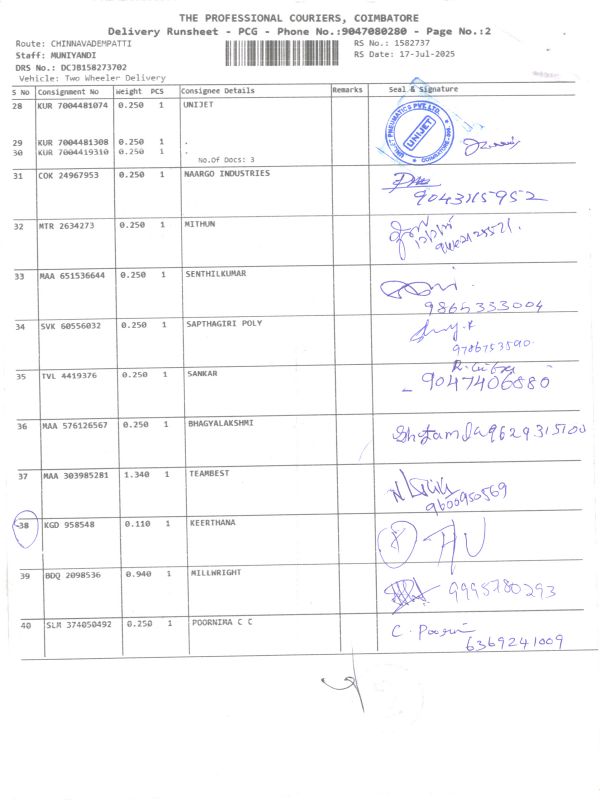 THE PROFESSIONAL COURIERS, COIMBATORE
Delivery Runsheet - PCG - Phone No.:9047080280 - Page No.:2
Route: CHINNAVADEMPATTI
RS No.: 1582737
Staff: MUNIYANDI
RS Date: 17-Jul-2025
DRS No.: DCJB158273702
Vehicle: Two Wheeler Delivery
S No Consignment No Weight PCS Consignee Details Remarks Seal & Signature
28 KUR 7004481074 0.250 1 UNIJET
UNIJET PNEUMATICS PVT LTD.
UNIJET
29 KUR 7004481308 0.250 1 .
30 KUR 7004419310 0.250 1 .
No.Of Docs: 3
31 COK 24967953 0.250 1 NAARGO INDUSTRIES
32 MTR 2634273 0.250 1 MITHUN
33 MAA 651536644 0.250 1 SENTHILKUMAR
9865333004
34 SVK 60556032 0.250 1 SAPTHAGIRI POLY
9786753590
35 TVL 4419376 0.250 1 SANKAR
9047406880
36 MAA 576126567 0.250 1 BHAGYALAKSHMI
9629315100
37 MAA 303985281 1.340 1 TEAMBEST
9600950569
38 KGD 958548 0.110 1 KEERTHANA
8
39 BDQ 2098536 0.940 1 MILLWRIGHT
9995780293
40 SLM 374050492 0.250 1 POORNIMA C C
6369241009